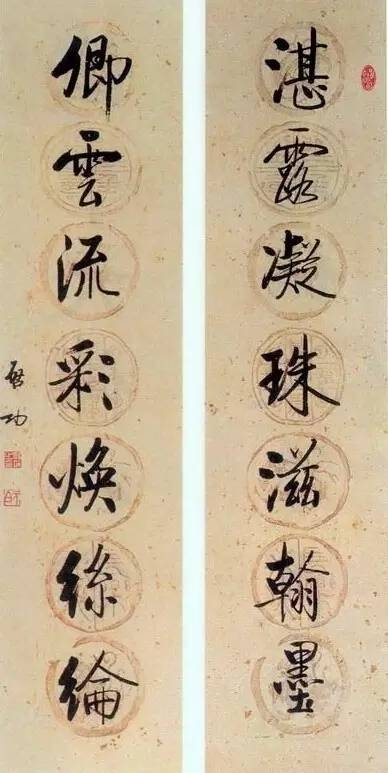 湛露凝珠滋翰墨
卿雲流彩焕絲綸
啟功